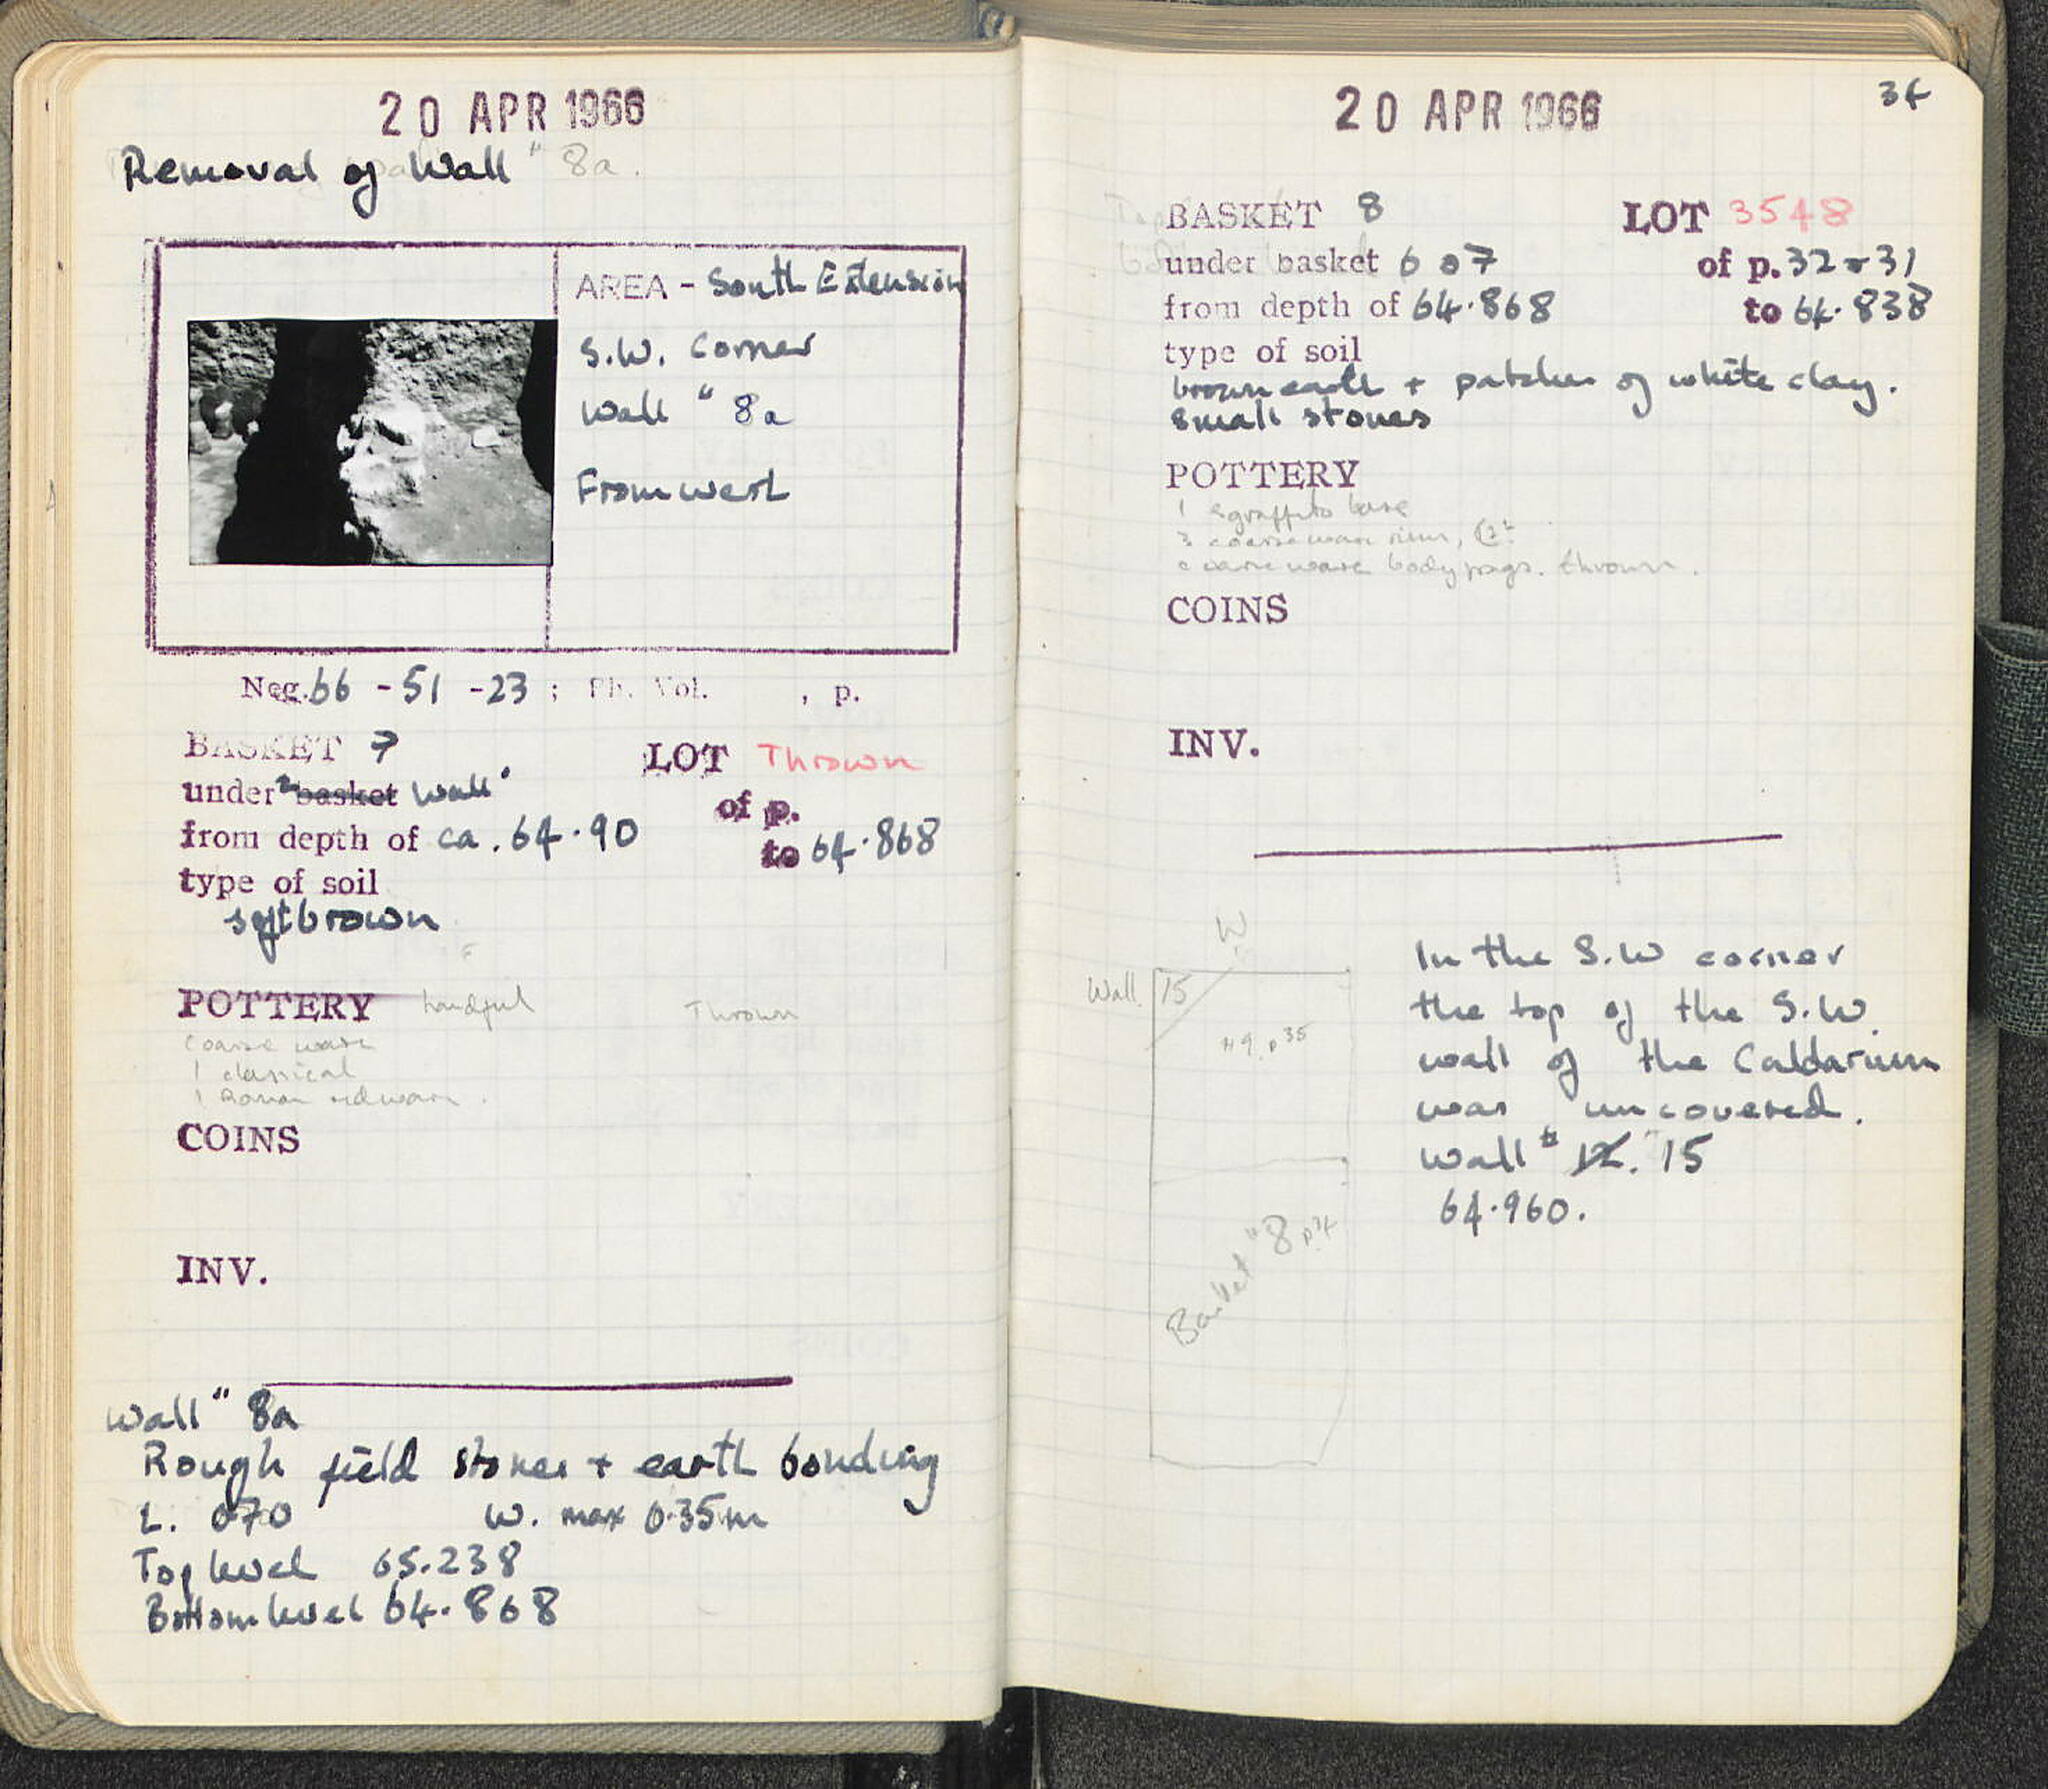 20 APR 1966
Removal of Wall " 8a.
AREA - South Extension
S.W. Corner
Wall " 8a
From west
Neg. 66 - 51 - 23 ; Ph. Vol. , p.
BASKET 7 LOT Thrown
under basket wall of p.
from depth of ca. 64.90 to 64.868
type of soil
soft brown
POTTERY handful Thrown
coarse ware
1 classical
1 Roman red ware.
COINS
INV.
Wall " 8a
Rough field stones + earth bonding
L. 0.70 W. max 0.35m
Top level 65.238
Bottom level 64.868
20 APR 1966
34
BASKET 8 LOT 3548
under basket 6 + 7 of p. 32 + 31
from depth of 64.868 to 64.838
type of soil
brown earth + patches of white clay.
small stones
POTTERY
1 sgraffito base
3 coarse ware rims,
coarse ware body frags. thrown.
COINS
INV.
In the S.W corner
the top of the S.W.
wall of the Caldarium
was uncovered.
Wall # 12. 15
64.960.
W
Wall 15
"9. p 35
Basket "8 p34